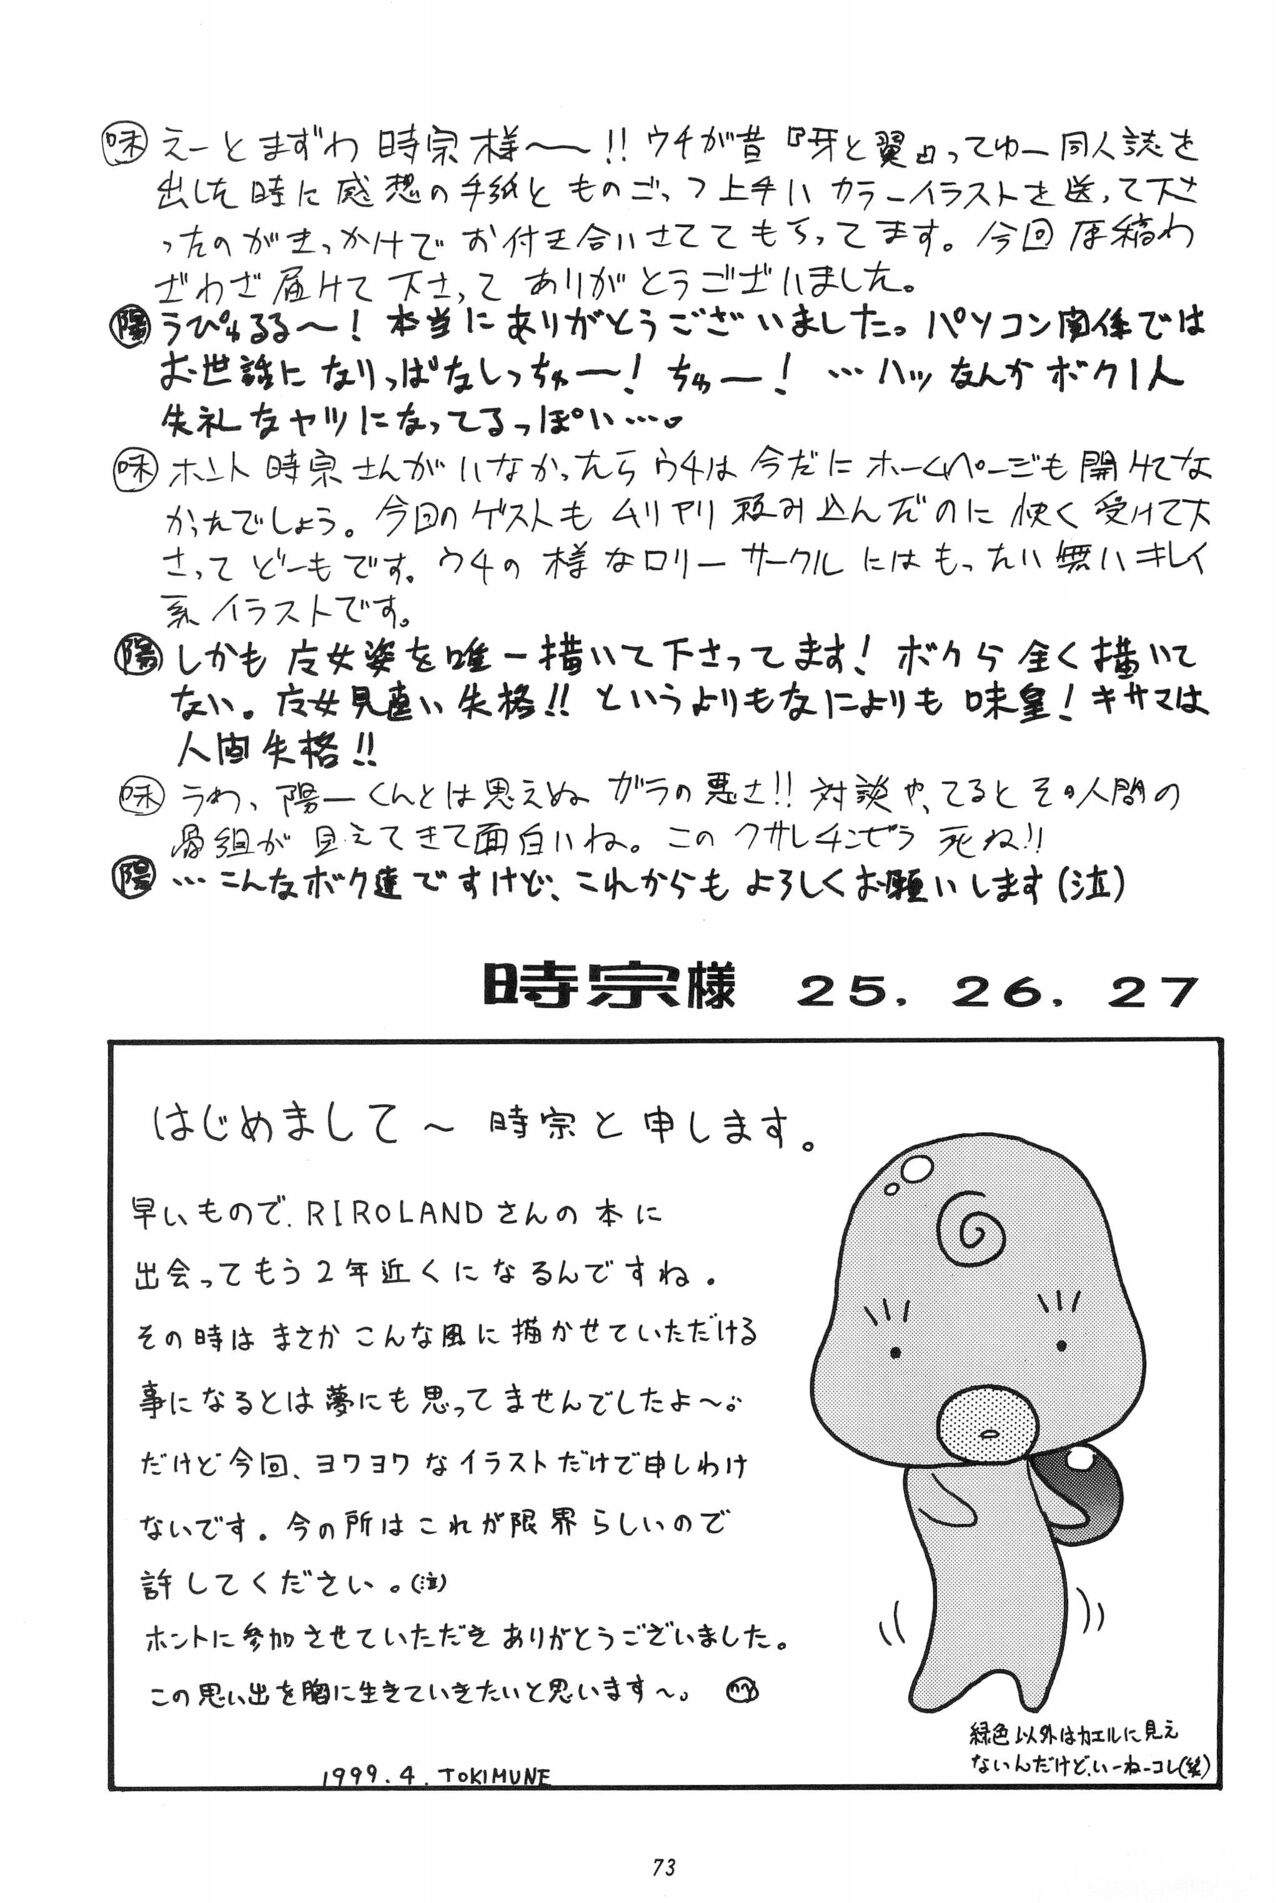 味 えーとまずわ 時宗様〜!! ウチが昔『牙と翼』ってゆー同人誌を
出した時に感想の手紙と ものごっつ上手い カラーイラストを送って下さ
ったのがきっかけで お付き合いさせてもらってます。今回原稿わ
ざわざ届けて 下さって ありがとうございました。
陽 うぴゅるる〜! 本当にありがとうございました。パソコン関係では
お世話になりっぱなしっちゅー! ちゅー! …ハッ なんか ボク1人
失礼なヤツになってるっぽい…。
味 ホント 時宗さんがいなかったら ウチは 今だに ホームページも 開けてな
かったでしょう。今回のゲストも ムリヤリ 頼み込んだのに 快く 受けて下
さって どーもです。ウチの 様な ロリー サークル にはもったい無い キレイ
系 イラストです。
陽 しかも 女姿を唯一描いて下さってます! ボクら 全く描いて
ない。女見直い失格!! というよりもなによりも 味皇! キサマは
人間失格!!
味 うわっ 陽一くんとは思えぬ ガラの悪さ!! 対談やってると その人間の
骨組が 見えてきて面白いね。この クサレチンピラ 死ね!!
陽 …こんなボク達ですけど、これからも よろしくお願いします(泣)
時宗様 25. 26. 27
はじめまして〜 時宗と申します。
早いもので、RIROLANDさんの本に
出会ってもう2年近くになるんですね。
その時は まさか こんな風に描かせていただける
事になるとは夢にも思ってませんでしたよ〜。
だけど今回、ヨワヨワなイラストだけで申しわけ
ないです。今の所はこれが限界らしいので
許してください。(泣)
ホントに参加させていただき ありがとうございました。
この思い出を胸に生きていきたいと思います〜。
緑色以外はカエルに見え
ないんだけど、いーねーコレ(笑)
1999.4.TOKIMUNE
73